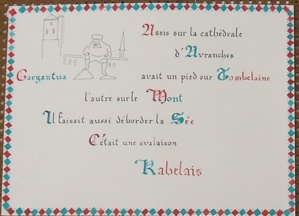 Assis sur la cathédrale
d'Avranches
Gargantua avait un pied sur Tombelaine
l'autre sur le Mont
Il faisait aussi déborder la Sée
C'était une avalaison
Rabelais